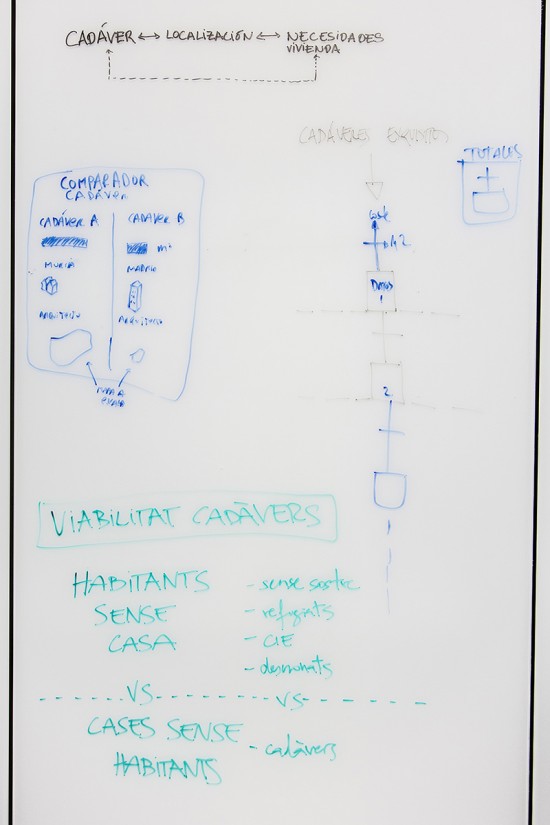 CADÁVER ↔ LOCALIZACIÓN ↔ NECESIDADES
VIVIENDA
CADÁVERES
TOTALES
COMPARADOR
CADÁVER
CADÁVER A
CADÁVER B
m²
MURCIA
MADRID
ARQUITECTO
ARQUITECTO
DATOS
1
2
VIABILITAT CADÀVERS
HABITANTS
SENSE
CASA
- sense sostre
- refugiats
- CIE
- desnonats
VS
VS
CASES SENSE
HABITANTS
- cadàvers